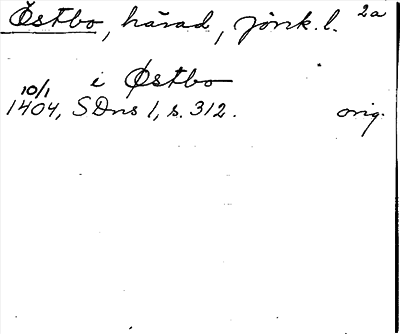 Östbo, härad, Jönk. l. 2a
i Østbo
10/1
1404, SDns 1, s. 312. orig.